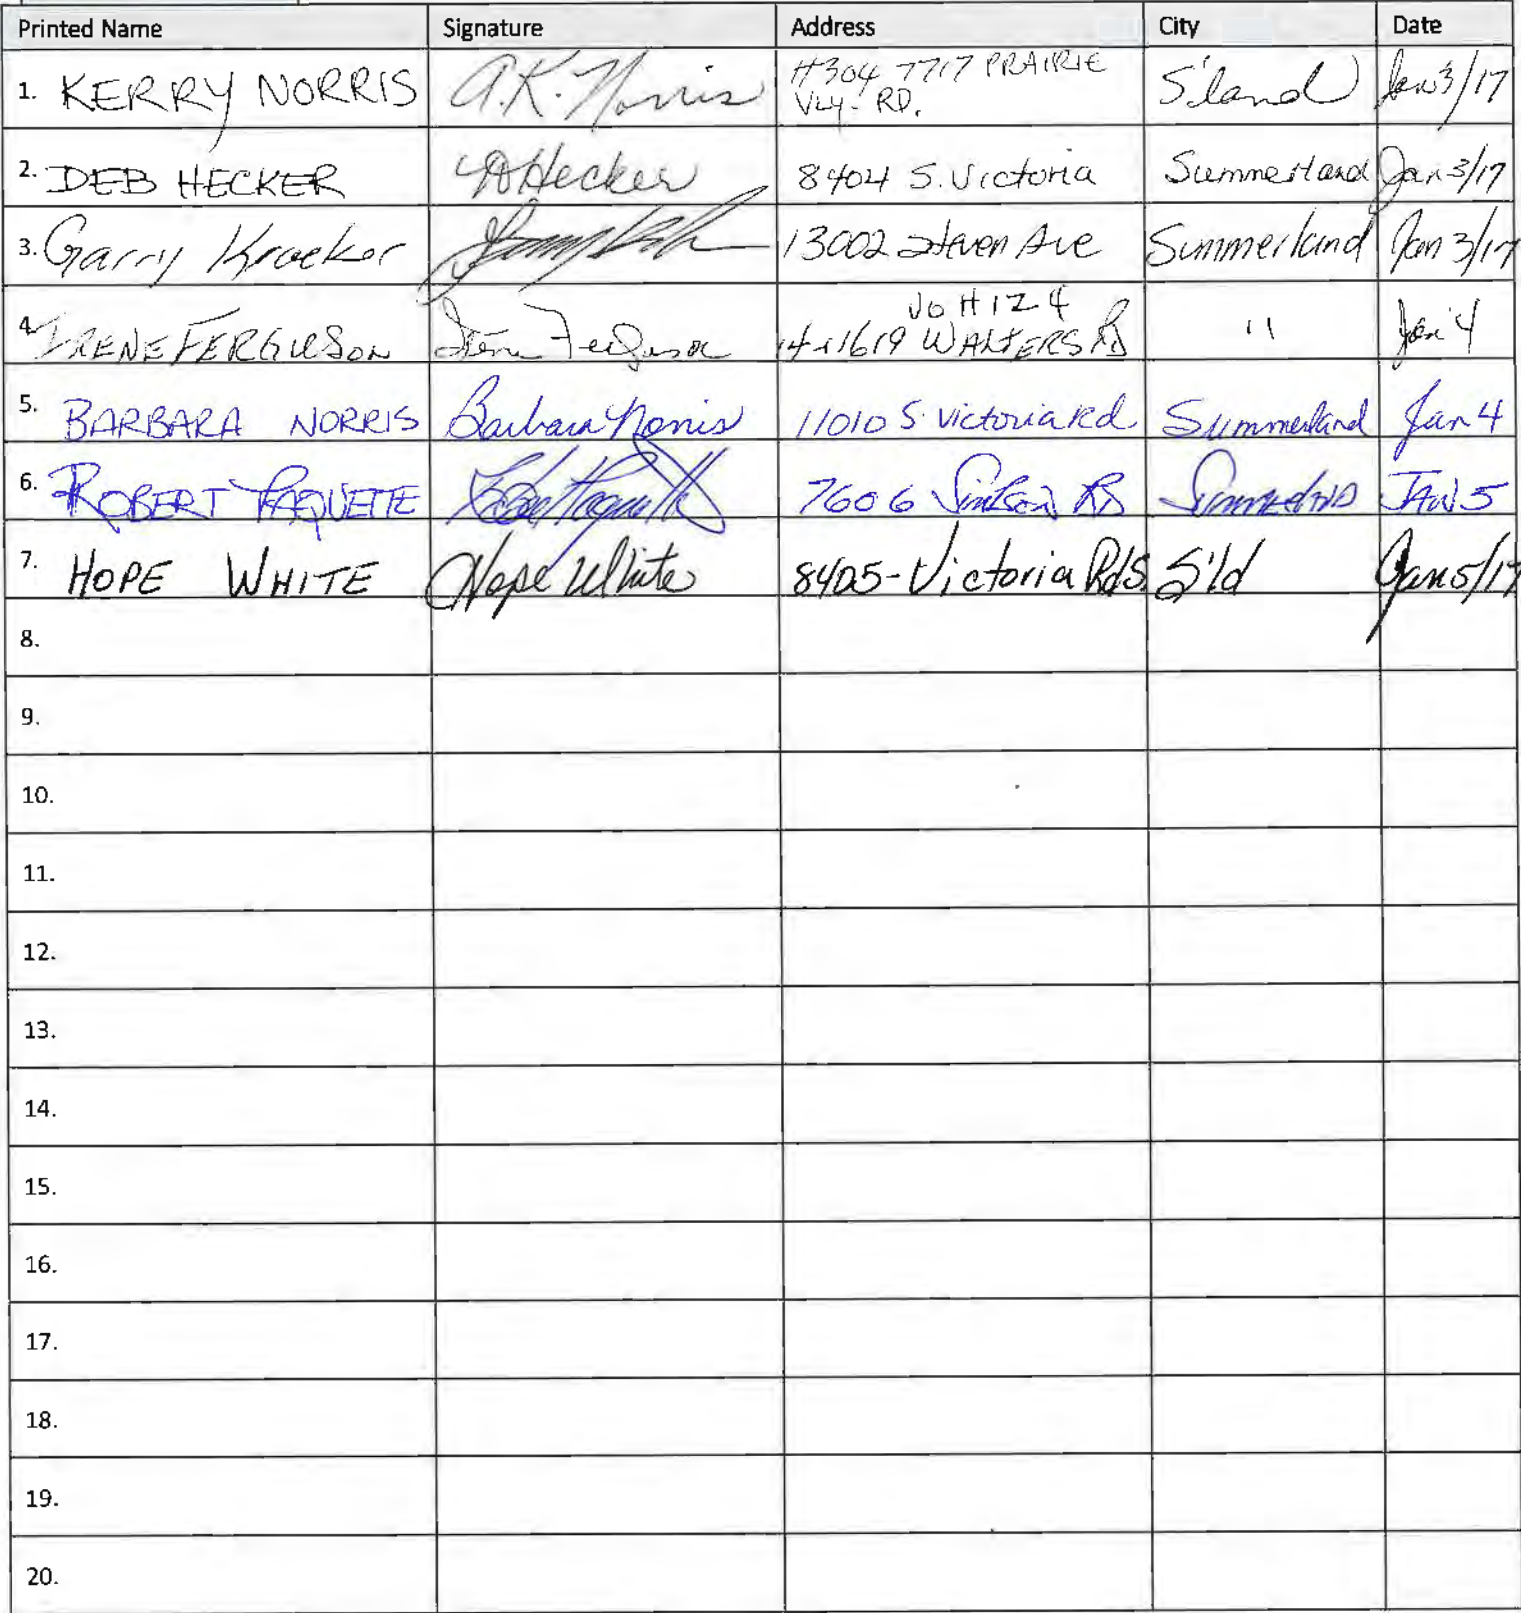 Printed Name Signature Address City Date
1. KERRY NORRIS A.K. Norris #304 7717 PRAIRIE S'land Jan 3/17
VLY- RD.
2. DEB HECKER D Hecker 8404 S. Victoria Summerland Jan 3/17
3. Garry Kroeker 13002 Steven Ave Summerland Jan 3/17
V0H 1Z4
4. IRENE FERGUSON Irene Ferguson 14-11619 WALTERS RD " Jan 4
5. BARBARA NORRIS Barbara Norris 11010 S. Victoria Rd. Summerland Jan 4
6. ROBERT PAQUETTE Robert Paquette 7606 RD Summerland JAN 5
7. HOPE WHITE Hope White 8405-Victoria Rd S. S'ld Jan 5/17
8.
9.
10.
11.
12.
13.
14.
15.
16.
17.
18.
19.
20.